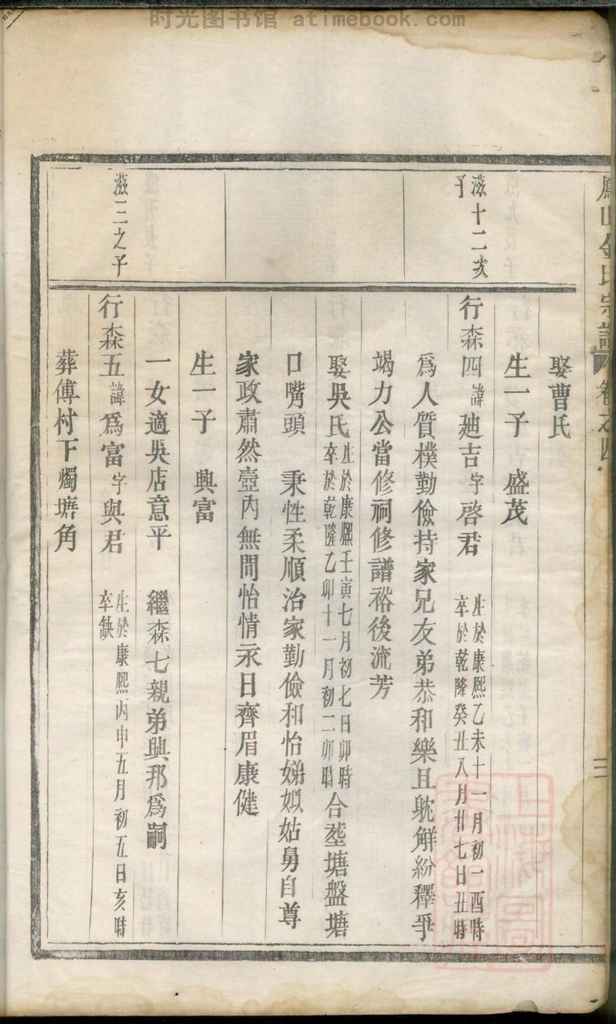 时光图书馆 atimebook.com
金氏宗譜 卷之四
三
娶曹氏
生一子 盛茂
滋十二次子
行森四諱廸吉字啓君 生於康熙乙未十一月初一酉時 卒於乾隆癸丑八月廿七日丑時
爲人質樸勤儉持家兄友弟恭和樂且耽解紛釋爭
竭力公當修祠修譜裕後流芳
娶吳氏 生於康熙壬寅七月初七日卯時 卒於乾隆乙卯十一月初二卯時 合塟塘盤塘
口嘴頭 秉性柔順治家勤儉和怡娣姒姑舅自尊
家政肅然壼内無間怡情永日齊眉康健
生一子 興富
一女適吳店意平 繼森七親弟與邦爲嗣
滋三之子
行森五諱爲富字與君 生於康熙丙申五月初五日亥時 卒缺
葬傅村下燭塘角